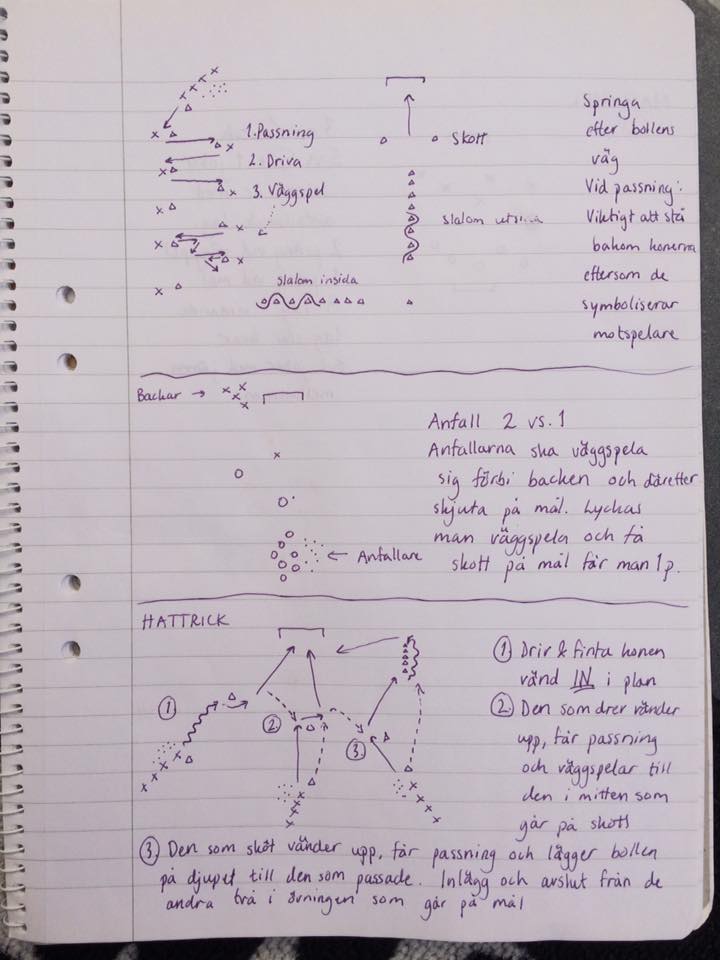 1. Passning
2. Driva
3. Väggspel
slalom insida
Skott
slalom utsida
Springa
efter bollens
väg
Vid passning:
Viktigt att stå
bakom konerna
eftersom de
symboliserar
motspelare
Backar →
Anfall 2 vs. 1
Anfallarna ska väggspela
sig förbi backen och däretter
skjuta på mål. Lyckas
man väggspela och få
skott på mål får man 1 p.
← Anfallare
HATTRICK
1
2.
3.
① Driv & finta konen
vänd IN i plan
② Den som drev vänder
upp, får passning
och väggspelar till
den i mitten som
går på skott
③ Den som sköt vänder upp, får passning och lägger bollen
på djupet till den som passade. Inlägg och avslut från de
andra två i övningen som går på mål